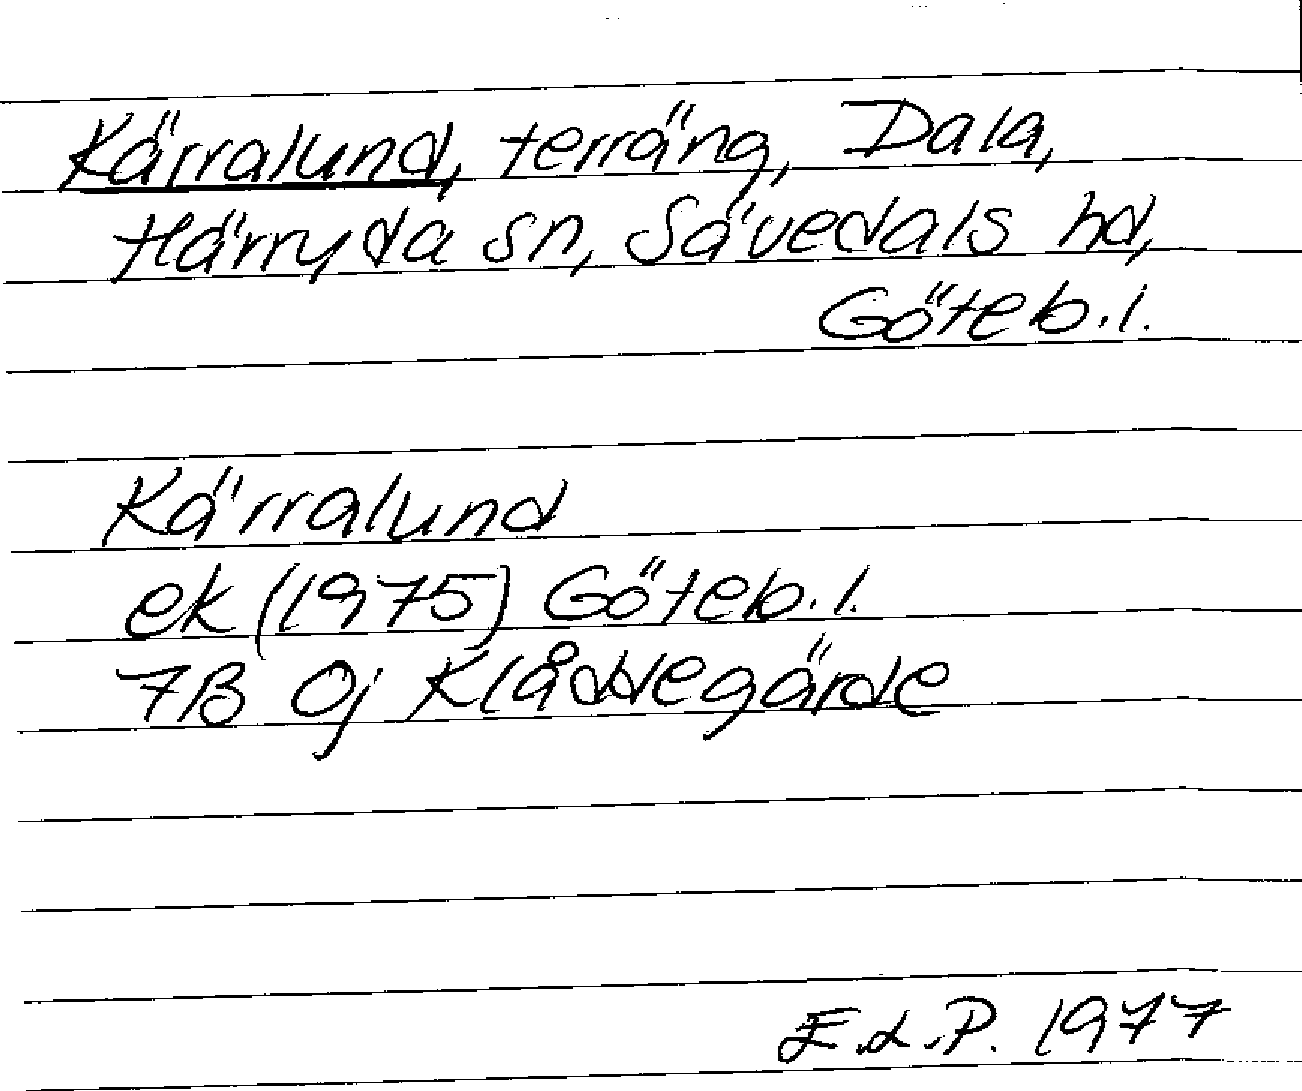 Kärralund, terräng, Dala,
Härryda sn, Sävedals hd,
Göteb.l.
Kärralund
ek (1975) Göteb.l.
7B 0j Klåddegärde
E.d.P. 1977